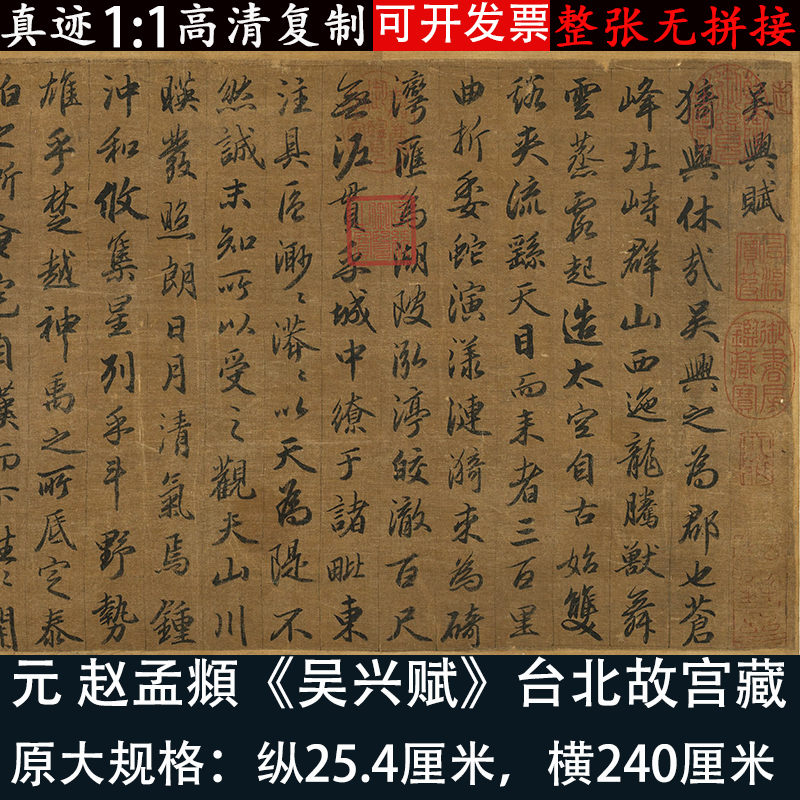 真迹1:1高清复制 可开发票 整张无拼接
吴興賦
猗與休哉吴興之為郡也蒼
峰北峙群山西迤龍騰獸舞
雲蒸霞起造太空自古始雙
谿夾流繇天目而来者三百里
曲折委蛇演漾漣漪束為碕
灣匯為湖陂泓渟皎澈百尺
無泥貫乎城中繚于諸毗東
注具區渺〻漭〻以天為隄不
然誠未知所以受之觀夫山川
暎發照朗日月清氣焉鍾
沖和攸集星列乎斗野勢
雄乎楚越神禹之所厎定泰
伯之所奄宅自漢而下往〻開
元 赵孟頫《吴兴赋》台北故宫藏
原大规格：纵25.4厘米，横240厘米